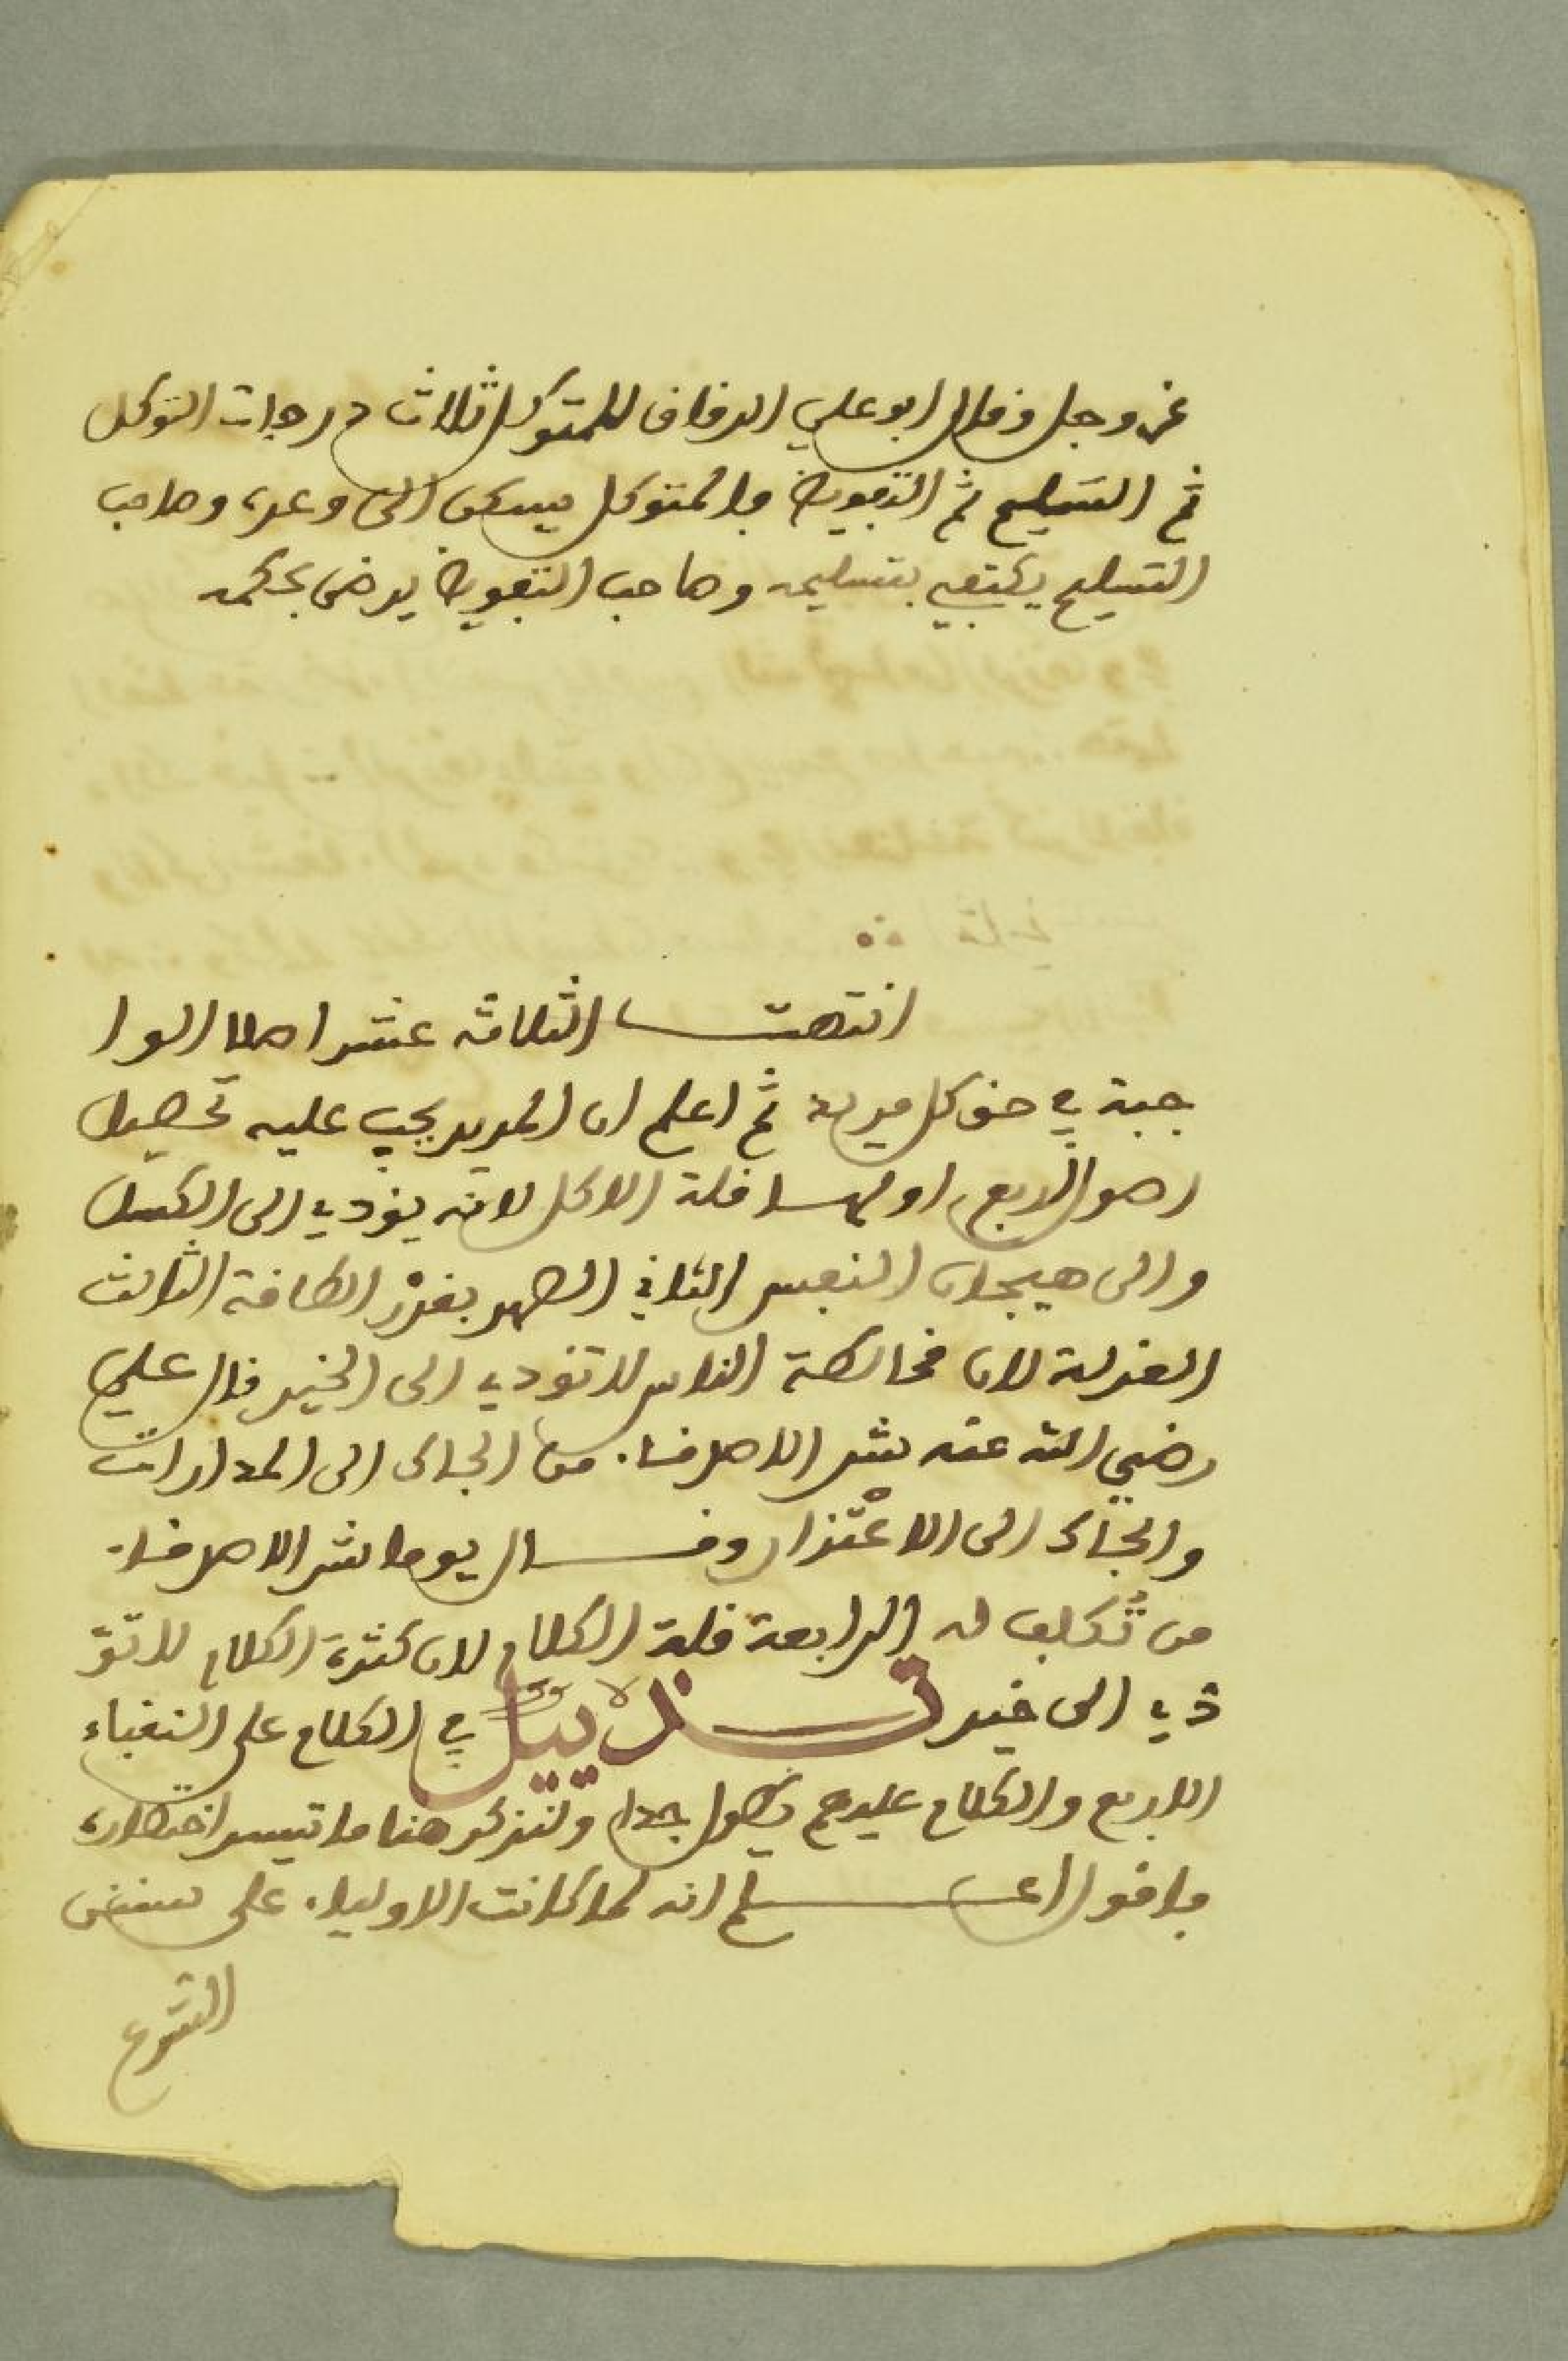 عز وجل وقال ابو علي الدقاق للمتوكل ثلاث درجات التوكل
ثم التسليم ثم التفويض فالمتوكل يسكن الى وعده وصاحب
التسليم يكتفي بتسليمه وصاحب التفويض يرضى بحكمه
انتهت الثلاثة عشر اصلا الوا
جبة في حق كل مريد ثم اعلم ان المريد يجب عليه تحصيل
اصول اربع اولها قلة الاكل لانه يؤدي الى الكسل
والى هيجان النفس الثاني الصهر بقدْر الطاقة الثالث
العزلة لان مخالطة الناس لا تؤدي الى الخير قال علي
رضي الله عنه شر الاصدقاء من الجاك الى المدارات
والجاك الى الاعْتذار وقال يوما شر الاصدقاء
من تُكلف له الرابعة قلة الكلام لان كثرة الكلام لا تؤ
دي الى خير تذييل في الكلام على النقباء
الاربع والكلام عليهم يطول جدا ولنذكر هنا ما تيسر اختصاره
فاقول اعلم انه لما كانت الاولياء على
الشرع